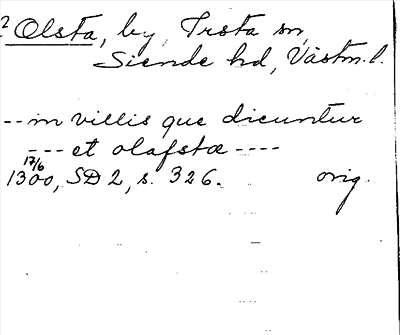 ? Olsta, by, Irsta sn,
Siende hd, Västm.l.
--in villis que dicuntur
--- et olafstæ ----
17/6
1300, SD 2, s. 326. orig.